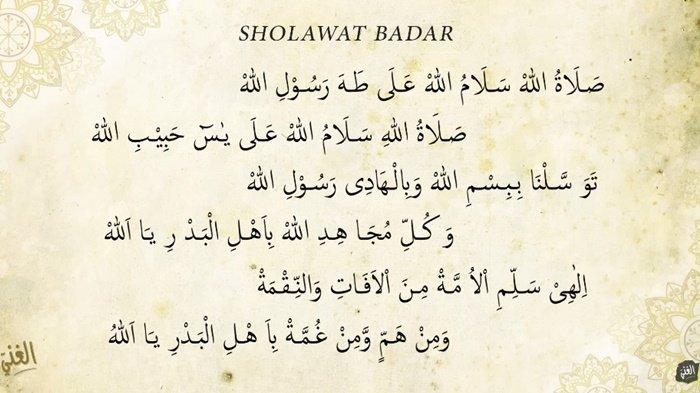 SHOLAWAT BADAR
صَلَاةُ اللهْ سَلَامُ اللهْ عَلَى طَهَ رَسُوْلِ اللهْ
صَلَاةُ اللهِ سَلَامُ اللهْ عَلَى يٰسٓ حَبِيْبِ اللهْ
تَوَ سَّلْنَا بِبِسْمِ اللهْ وَبِالْهَادِى رَسُوْلِ اللهْ
وَ كُلِّ مُجَا هِدِ اللهْ بِاَهْلِ الْبَدْ رِ يَا اَللهْ
اِلٰهِىْ سَلِّمِ اْلاُ مَّةْ مِنَ اْلاَفَاتِ وَالنِّقْمَةْ
وَمِنْ هَمٍّ وَّمِنْ غُمَّةْ بِاَ هْلِ الْبَدْرِ يَا اَللهُ
الغني
الغني